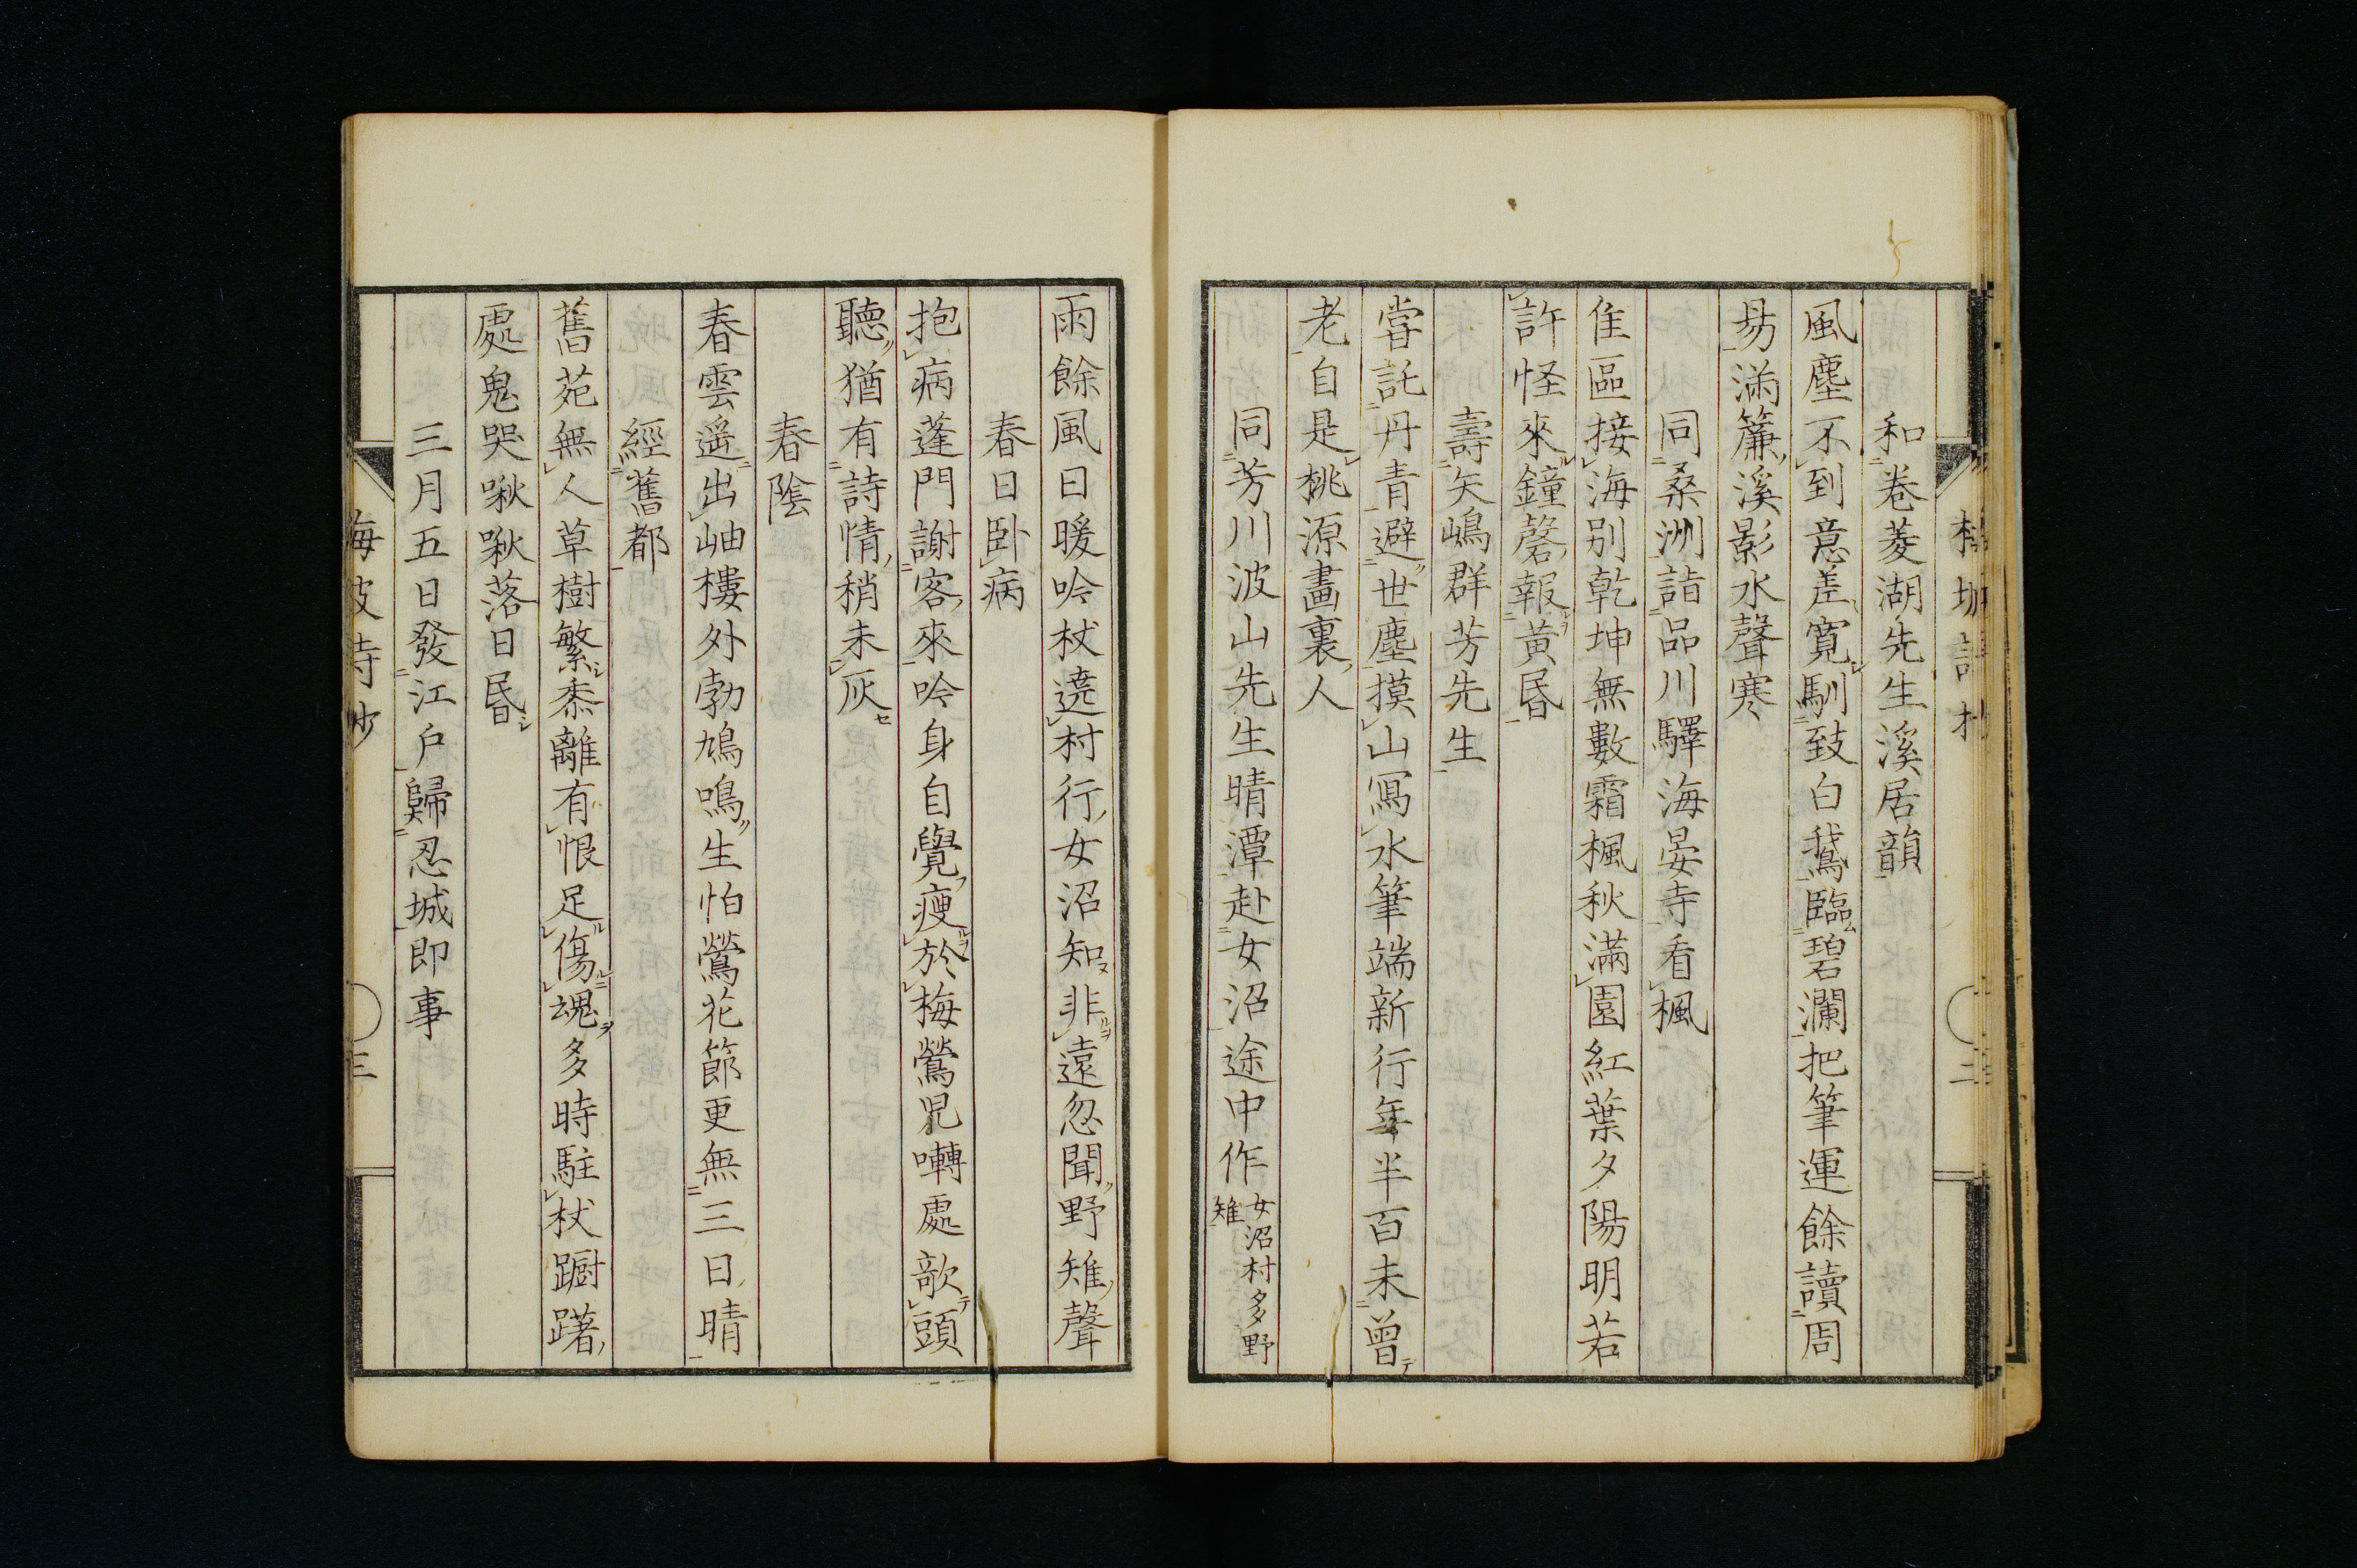 和卷菱湖先生溪居韻
風塵不到意差寛馴致白鵞臨碧瀾把筆運餘讀周
易滿簾溪影水聲寒
同桑洲詣品川驛海晏寺看楓
隹區接海別乾坤無數霜楓秋滿園紅葉夕陽明若
許怪來鐘磬報黃昏
壽矢嶋群芳先生
嘗託丹青避世塵摸山寫水筆端新行年半百未曾
老自是桃源畫裏人
同芳川波山先生晴潭赴女沼途中作
女沼村多野
雉
二
雨餘風日暖吟杖遶村行女沼知非遠忽聞野雉聲
春日臥病
抱病蓬門謝客來吟身自覺瘦於梅鶯児囀處歆頭
聽猶有詩情稍未灰
春陰
春雲遥出岫樓外勃鳩鳴生怕鶯花節更無三日晴
經舊都
舊苑無人草樹繁黍離有恨足傷魂多時駐杖蹰躇
處鬼哭啾啾落日昏
三月五日發江戶歸忍城即事
三